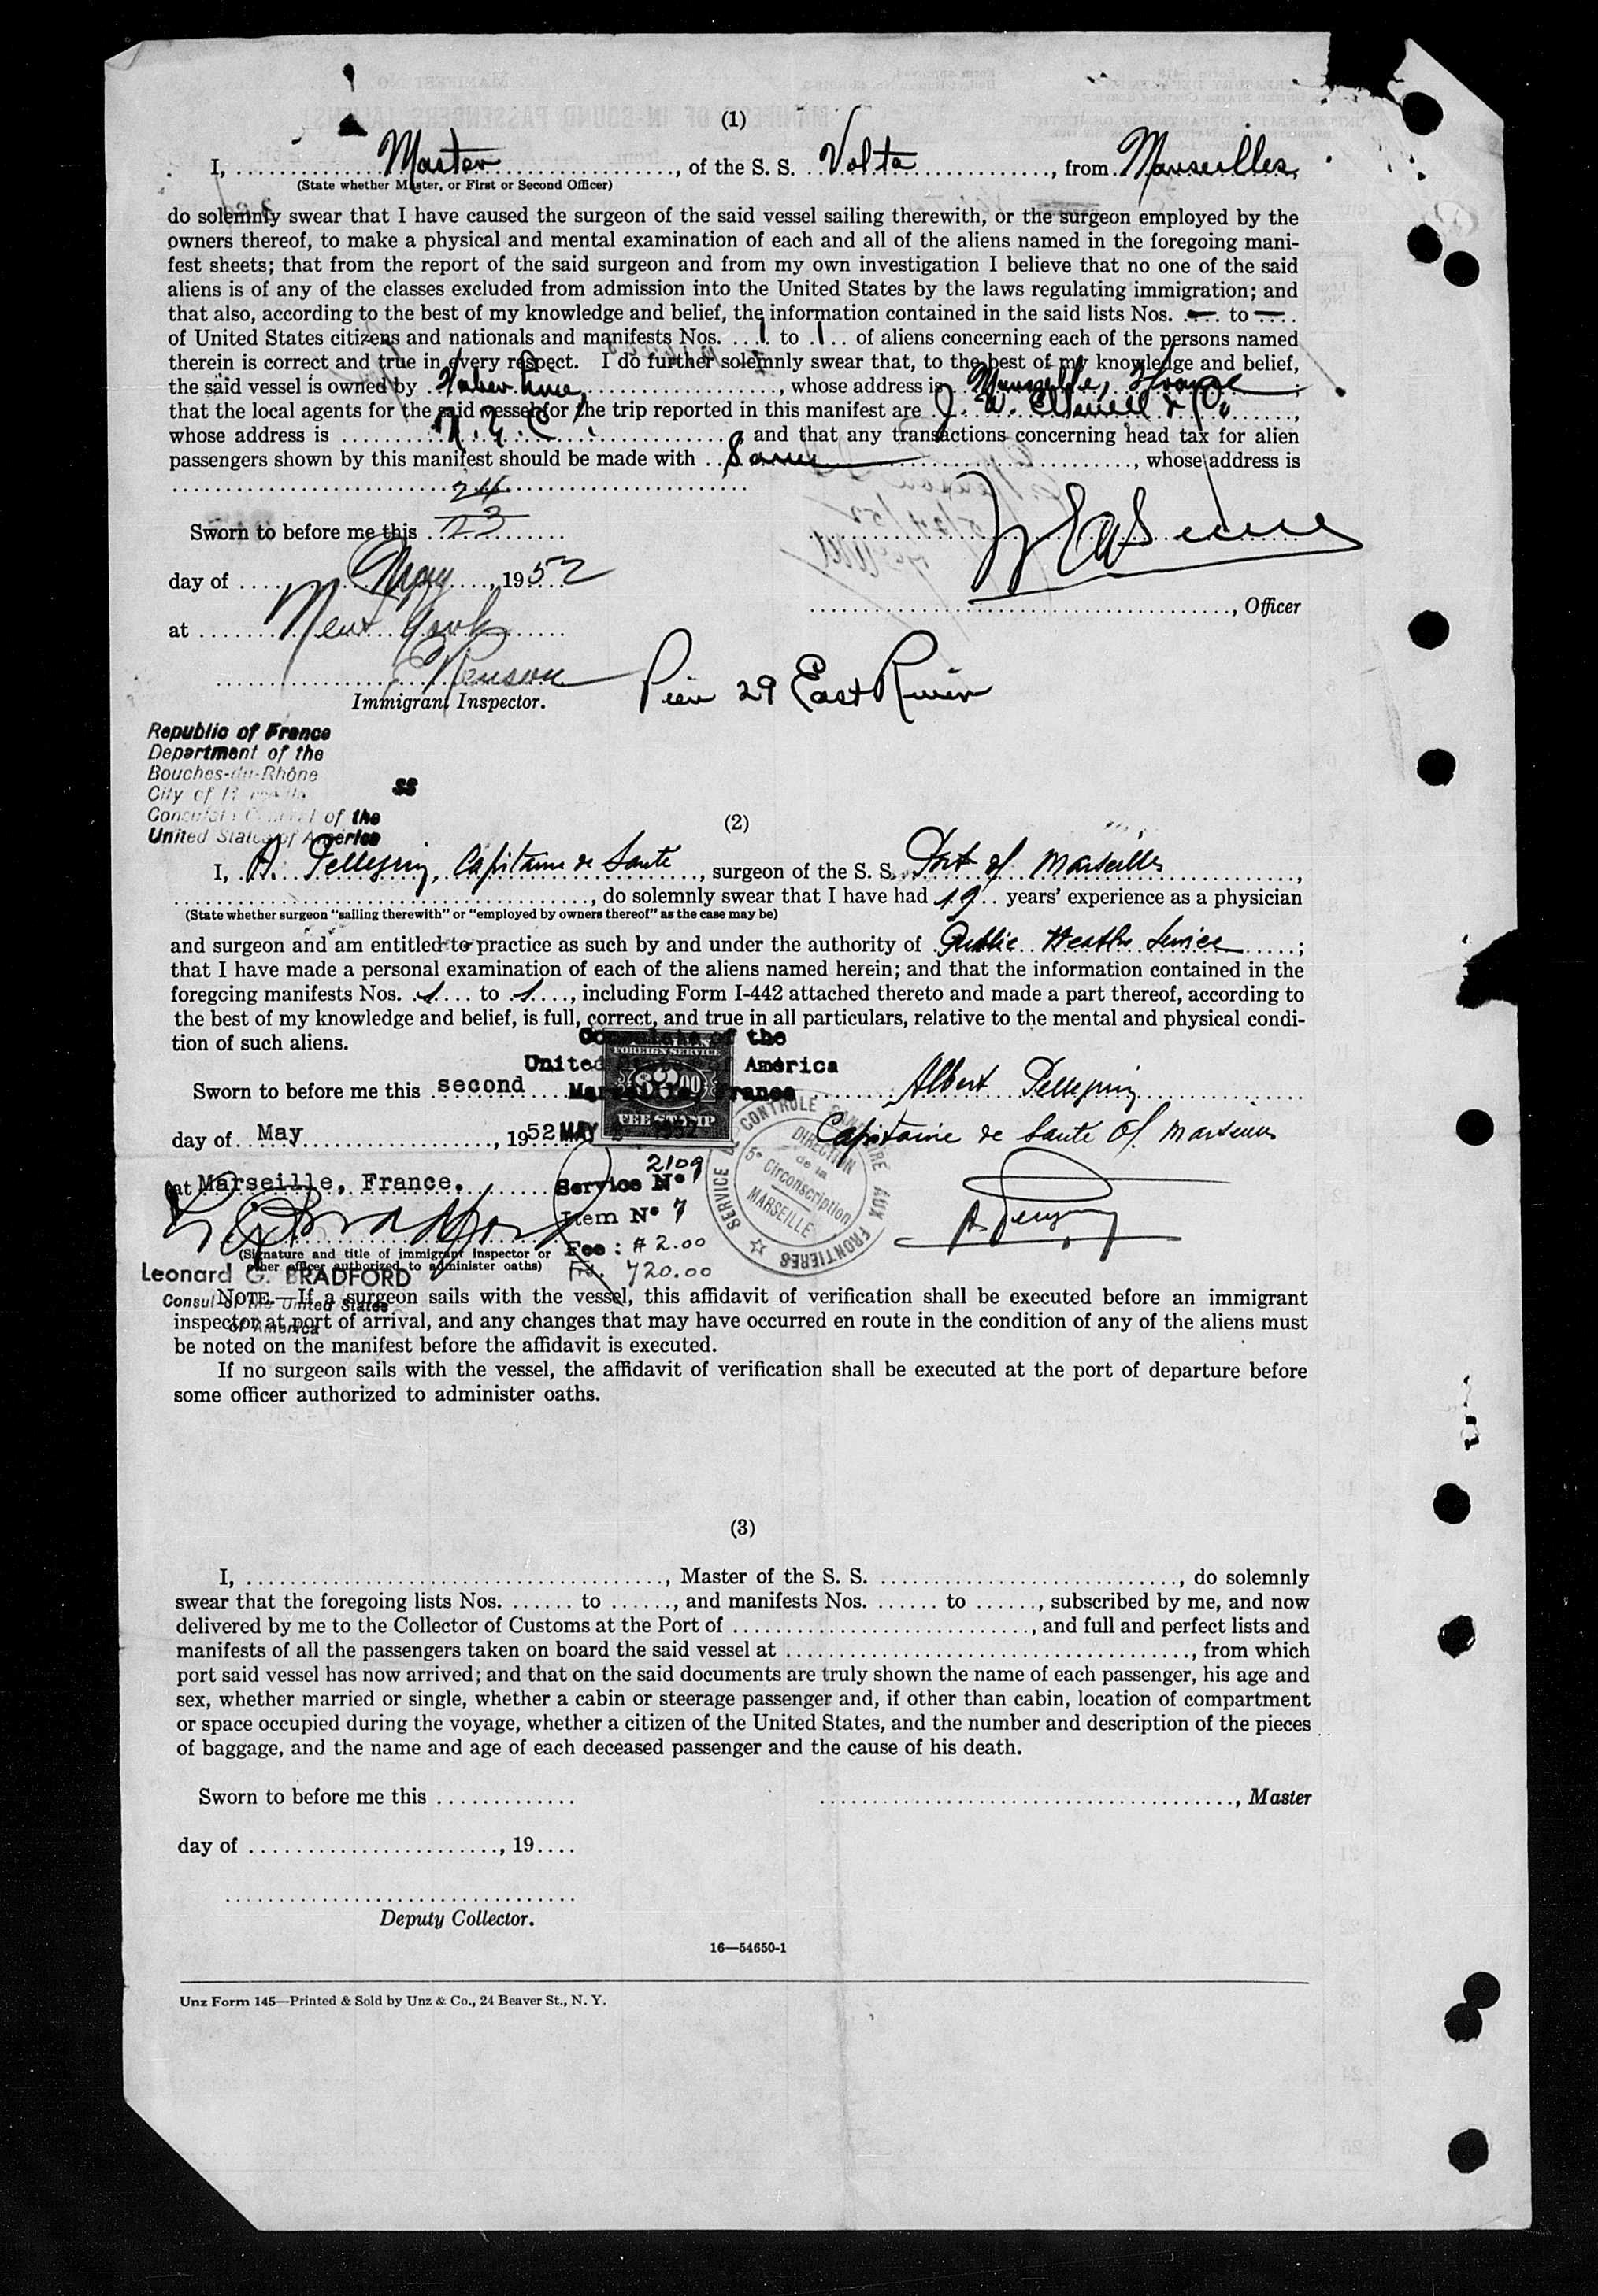 (1)
I, Master, of the S. S. Volta, from Marseilles,
(State whether Master, or First or Second Officer)
do solemnly swear that I have caused the surgeon of the said vessel sailing therewith, or the surgeon employed by the
owners thereof, to make a physical and mental examination of each and all of the aliens named in the foregoing mani-
fest sheets; that from the report of the said surgeon and from my own investigation I believe that no one of the said
aliens is of any of the classes excluded from admission into the United States by the laws regulating immigration; and
that also, according to the best of my knowledge and belief, the information contained in the said lists Nos. — to —
of United States citizens and nationals and manifests Nos. 1 to 1 of aliens concerning each of the persons named
therein is correct and true in every respect. I do further solemnly swear that, to the best of my knowledge and belief,
the said vessel is owned by Faber Line, whose address is Marseille, France;
that the local agents for the said vessel for the trip reported in this manifest are J. W. Elwell & Co,
whose address is N. Y. C., and that any transactions concerning head tax for alien
passengers shown by this manifest should be made with Same, whose address is
24
Sworn to before me this 23
day of May, 1952
, Officer
at New York
Immigrant Inspector.
Pier 29 East River
Republic of France
Department of the
Bouches-du-Rhône
City of Marseille
SS
Consulate General of the
United States of America
(2)
I, A. Pellegrin, Capitaine de Santé, surgeon of the S. S. Port of Marseilles,
, do solemnly swear that I have had 19 years' experience as a physician
(State whether surgeon "sailing therewith" or "employed by owners thereof" as the case may be)
and surgeon and am entitled to practice as such by and under the authority of Public Health Service;
that I have made a personal examination of each of the aliens named herein; and that the information contained in the
foregoing manifests Nos. 1 to 1, including Form I-442 attached thereto and made a part thereof, according to
the best of my knowledge and belief, is full, correct, and true in all particulars, relative to the mental and physical condi-
tion of such aliens.
Consulate of the
United States of America
Marseille, France
FOREIGN SERVICE
$2.00
FEE STAMP
Sworn to before me this second
Albert Pellegrin
day of May, 1952
MAY 2 1952
Capitaine de Santé of Marseilles
at Marseille, France.
SERVICE DU CONTROLE SANITAIRE AUX FRONTIERES
DIRECTION
de la
5e Circonscription
MARSEILLE
2109
Service No
Item No 7
Fee: $2.00
Frs. 720.00
(Signature and title of immigrant inspector or
other officer authorized to administer oaths)
Leonard G. BRADFORD
Consul of the United States
of America
NOTE.—If a surgeon sails with the vessel, this affidavit of verification shall be executed before an immigrant
inspector at port of arrival, and any changes that may have occurred en route in the condition of any of the aliens must
be noted on the manifest before the affidavit is executed.
If no surgeon sails with the vessel, the affidavit of verification shall be executed at the port of departure before
some officer authorized to administer oaths.
(3)
I, , Master of the S. S. , do solemnly
swear that the foregoing lists Nos. to , and manifests Nos. to , subscribed by me, and now
delivered by me to the Collector of Customs at the Port of , and full and perfect lists and
manifests of all the passengers taken on board the said vessel at , from which
port said vessel has now arrived; and that on the said documents are truly shown the name of each passenger, his age and
sex, whether married or single, whether a cabin or steerage passenger and, if other than cabin, location of compartment
or space occupied during the voyage, whether a citizen of the United States, and the number and description of the pieces
of baggage, and the name and age of each deceased passenger and the cause of his death.
Sworn to before me this
, Master
day of , 19
Deputy Collector.
16—54650-1
Unz Form 145—Printed & Sold by Unz & Co., 24 Beaver St., N. Y.